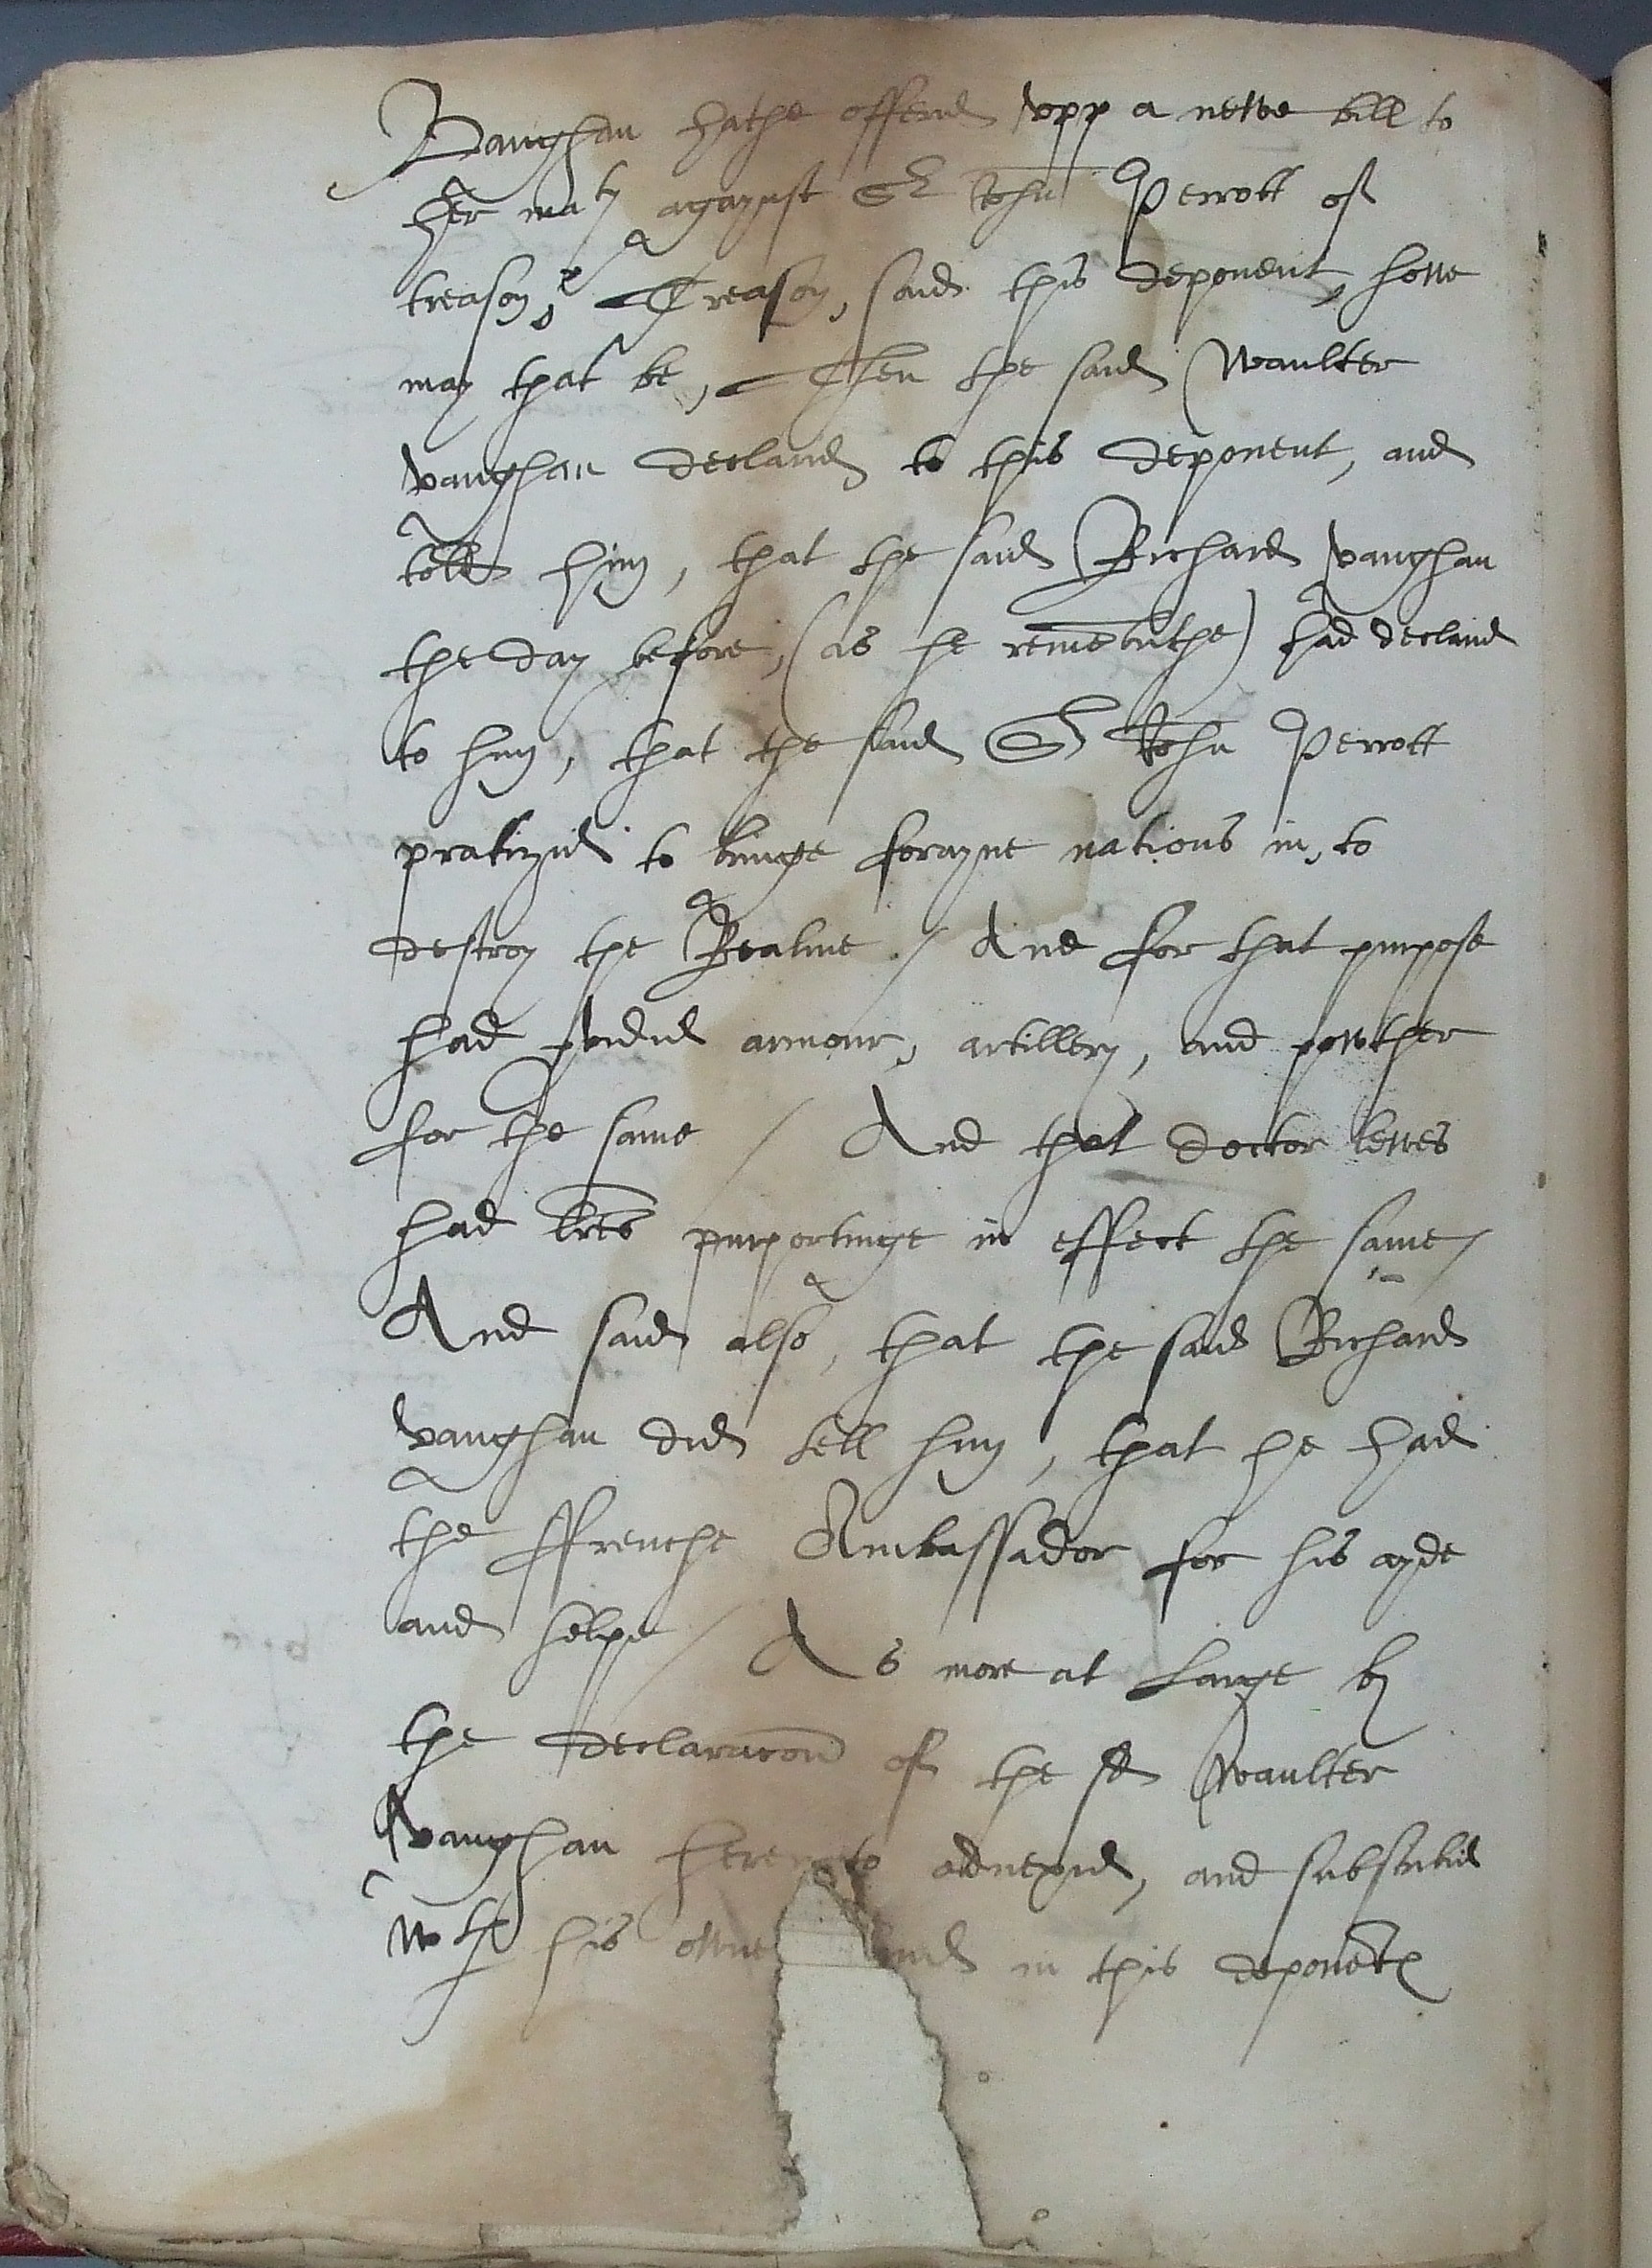 Vaughan hathe offered vpp a newe bill to
her maty agaynst Sr John Perrott of
treason, Treason, said this deponent, howe
may that be, Then the said Waulter
vaughan declared to this deponent, and
told him, that the said Richard vaughan
the day before, (as he remembrethe) had declared
to him, that the said Sr John Perrott
pratized to bringe forayne nations in, to
destroy the Realme / And for that purpose
had provided armour, artillery, and powther
for the same / And that doctor lewes
had lres purportinge in effect the same /
And said also, that the said Richard
vaughan did tell him, that he had
the ffrenche Ambassador for his ayde
and helpe / As more at large by
the declaracon of the sd Waulter
Vaughan herevnto adnexed, and subscribed
wth his owne hand in this deponentes